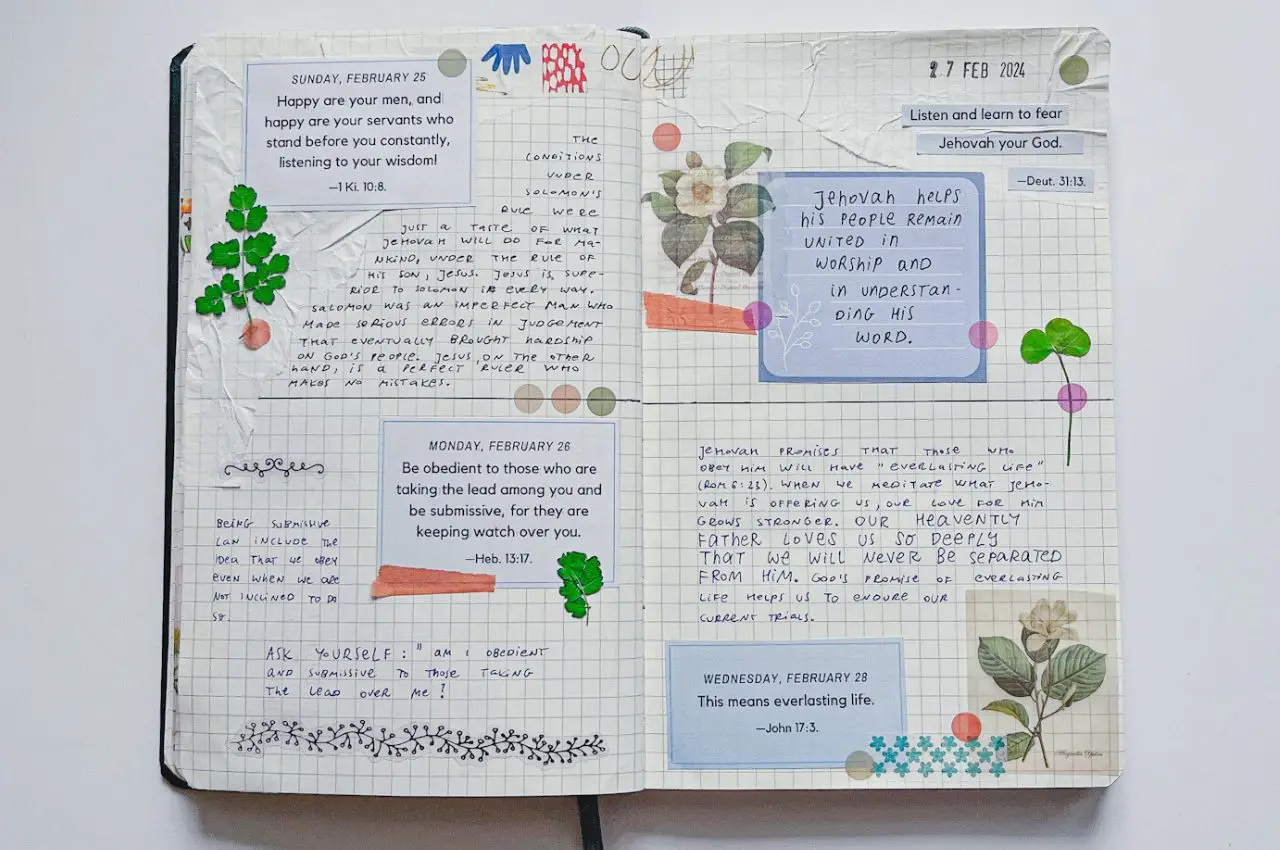 SUNDAY, FEBRUARY 25
Happy are your men, and
happy are your servants who
stand before you constantly,
listening to your wisdom!
—1 Ki. 10:8.
THE
CONDITIONS
UNDER
SOLOMON'S
RULE WERE
JUST A TASTE OF WHAT
JEHOVAH WILL DO FOR MA-
NKIND, UNDER THE RULE OF
HIS SON, JESUS. JESUS IS SUPE-
RIOR TO SOLOMON IN EVERY WAY.
SALOMON WAS AN IMPERFECT MAN WHO
MADE SERIOUS ERRORS IN JUDGEMENT
THAT EVENTUALLY BROUGHT HARDSHIP
ON GOD'S PEOPLE. JESUS, ON THE OTHER
HAND, IS A PERFECT RULER WHO
MAKES NO MISTAKES.
MONDAY, FEBRUARY 26
Be obedient to those who are
taking the lead among you and
be submissive, for they are
keeping watch over you.
—Heb. 13:17.
BEING SUBMISSIVE
CAN INCLUDE THE
IDEA THAT WE OBEY
EVEN WHEN WE ARE
NOT INCLINED TO DO
SO.
ASK YOURSELF: "AM I OBEDIENT
AND SUBMISSIVE TO THOSE TAKING
THE LEAD OVER ME?
27 FEB 2024
Listen and learn to fear
Jehovah your God.
—Deut. 31:13.
JEHOVAH HELPS
HIS PEOPLE REMAIN
UNITED IN
WORSHIP AND
IN UNDERSTAN-
DING HIS
WORD.
JEHOVAH PROMISES THAT THOSE WHO
OBEY HIM WILL HAVE "EVERLASTING LIFE"
(ROM 6:23). WHEN WE MEDITATE WHAT JEHO-
VAH IS OFFERING US, OUR LOVE FOR HIM
GROWS STRONGER. OUR HEAVENLY
FATHER LOVES US SO DEEPLY
THAT WE WILL NEVER BE SEPARATED
FROM HIM. GOD'S PROMISE OF EVERLASTING
LIFE HELPS US TO ENDURE OUR
CURRENT TRIALS.
WEDNESDAY, FEBRUARY 28
This means everlasting life.
—John 17:3.